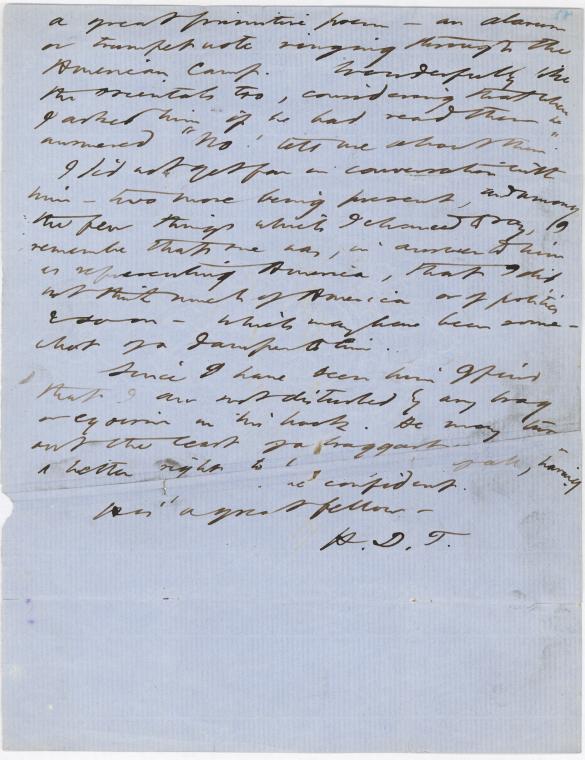 a great primitive poem – an alarum
or trumpet note ringing through the
American Camp. Wonderfully like
the orientals too, considering that when
I asked him if he had read them he
answered "No: tell me about them."
I did not get far in conversation with
him – two more being present, and among
the few things which I chanced to say, I
remember that one was, in answer to him
as representing America, that I did
not think much of America or of politics
& so on – which may have been some-
what of a damper to him.
Since I have seen him I find
that I am not disturbed by any brag
or egoism in his book. He may turn
out the least of a braggart of all, having
a better right to be confident.
He is a great fellow –
H. D. T.